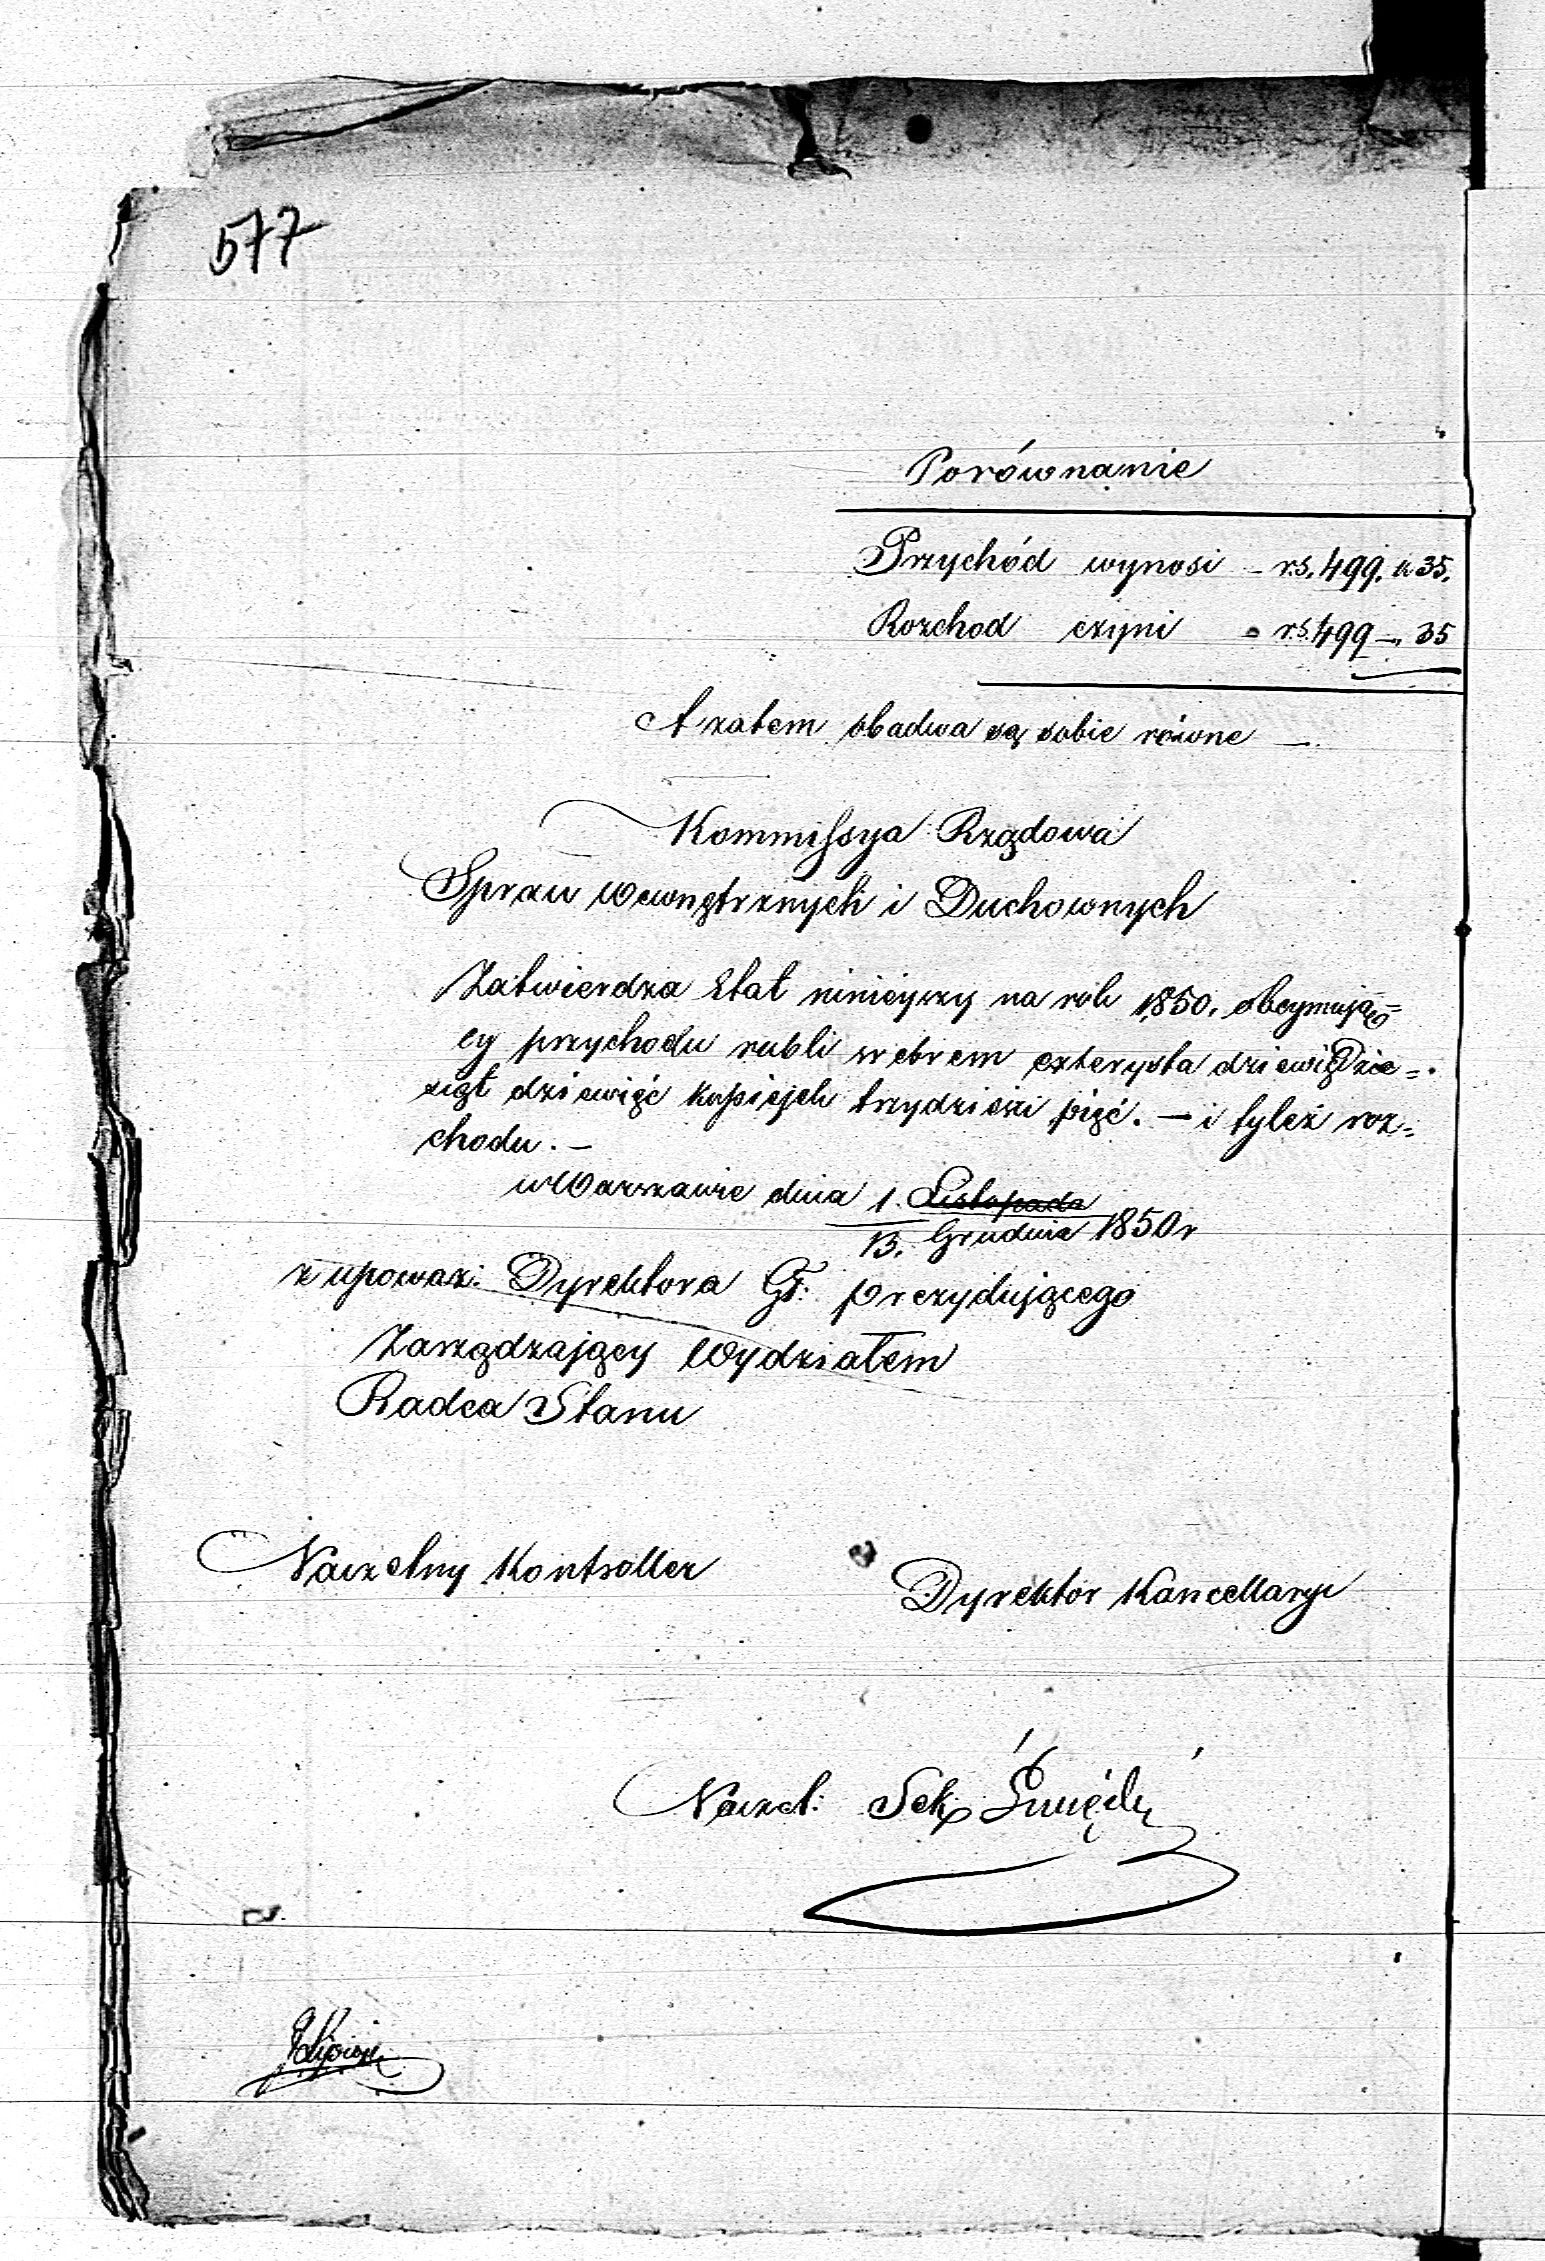 577
Porównanie
Przychód wynosi - rs. 499. k 35.
Rozchod czyni - rs. 499 -. 35
A zatem obadwa są sobie równe -
Kommissya Rządowa
Spraw Wewnętrznych i Duchownych
Zatwierdza Etat niniejszy na rok 1850. obejmują=
cy przychodu rubli srebrem czterysta dziewiędzie=
siąt dziewięć kopiejek trzydzieści pięć. - i tyleż roz=
chodu. -
w Warszawie dnia 1. Listopada
13. Grudnia 1850 r
z upoważ: Dyrektora Gł: prezydującego
Zarządzający Wydziałem
Radca Stanu
Naczelny Kontroller
Dyrektor Kancellaryi
Naczel: Sek